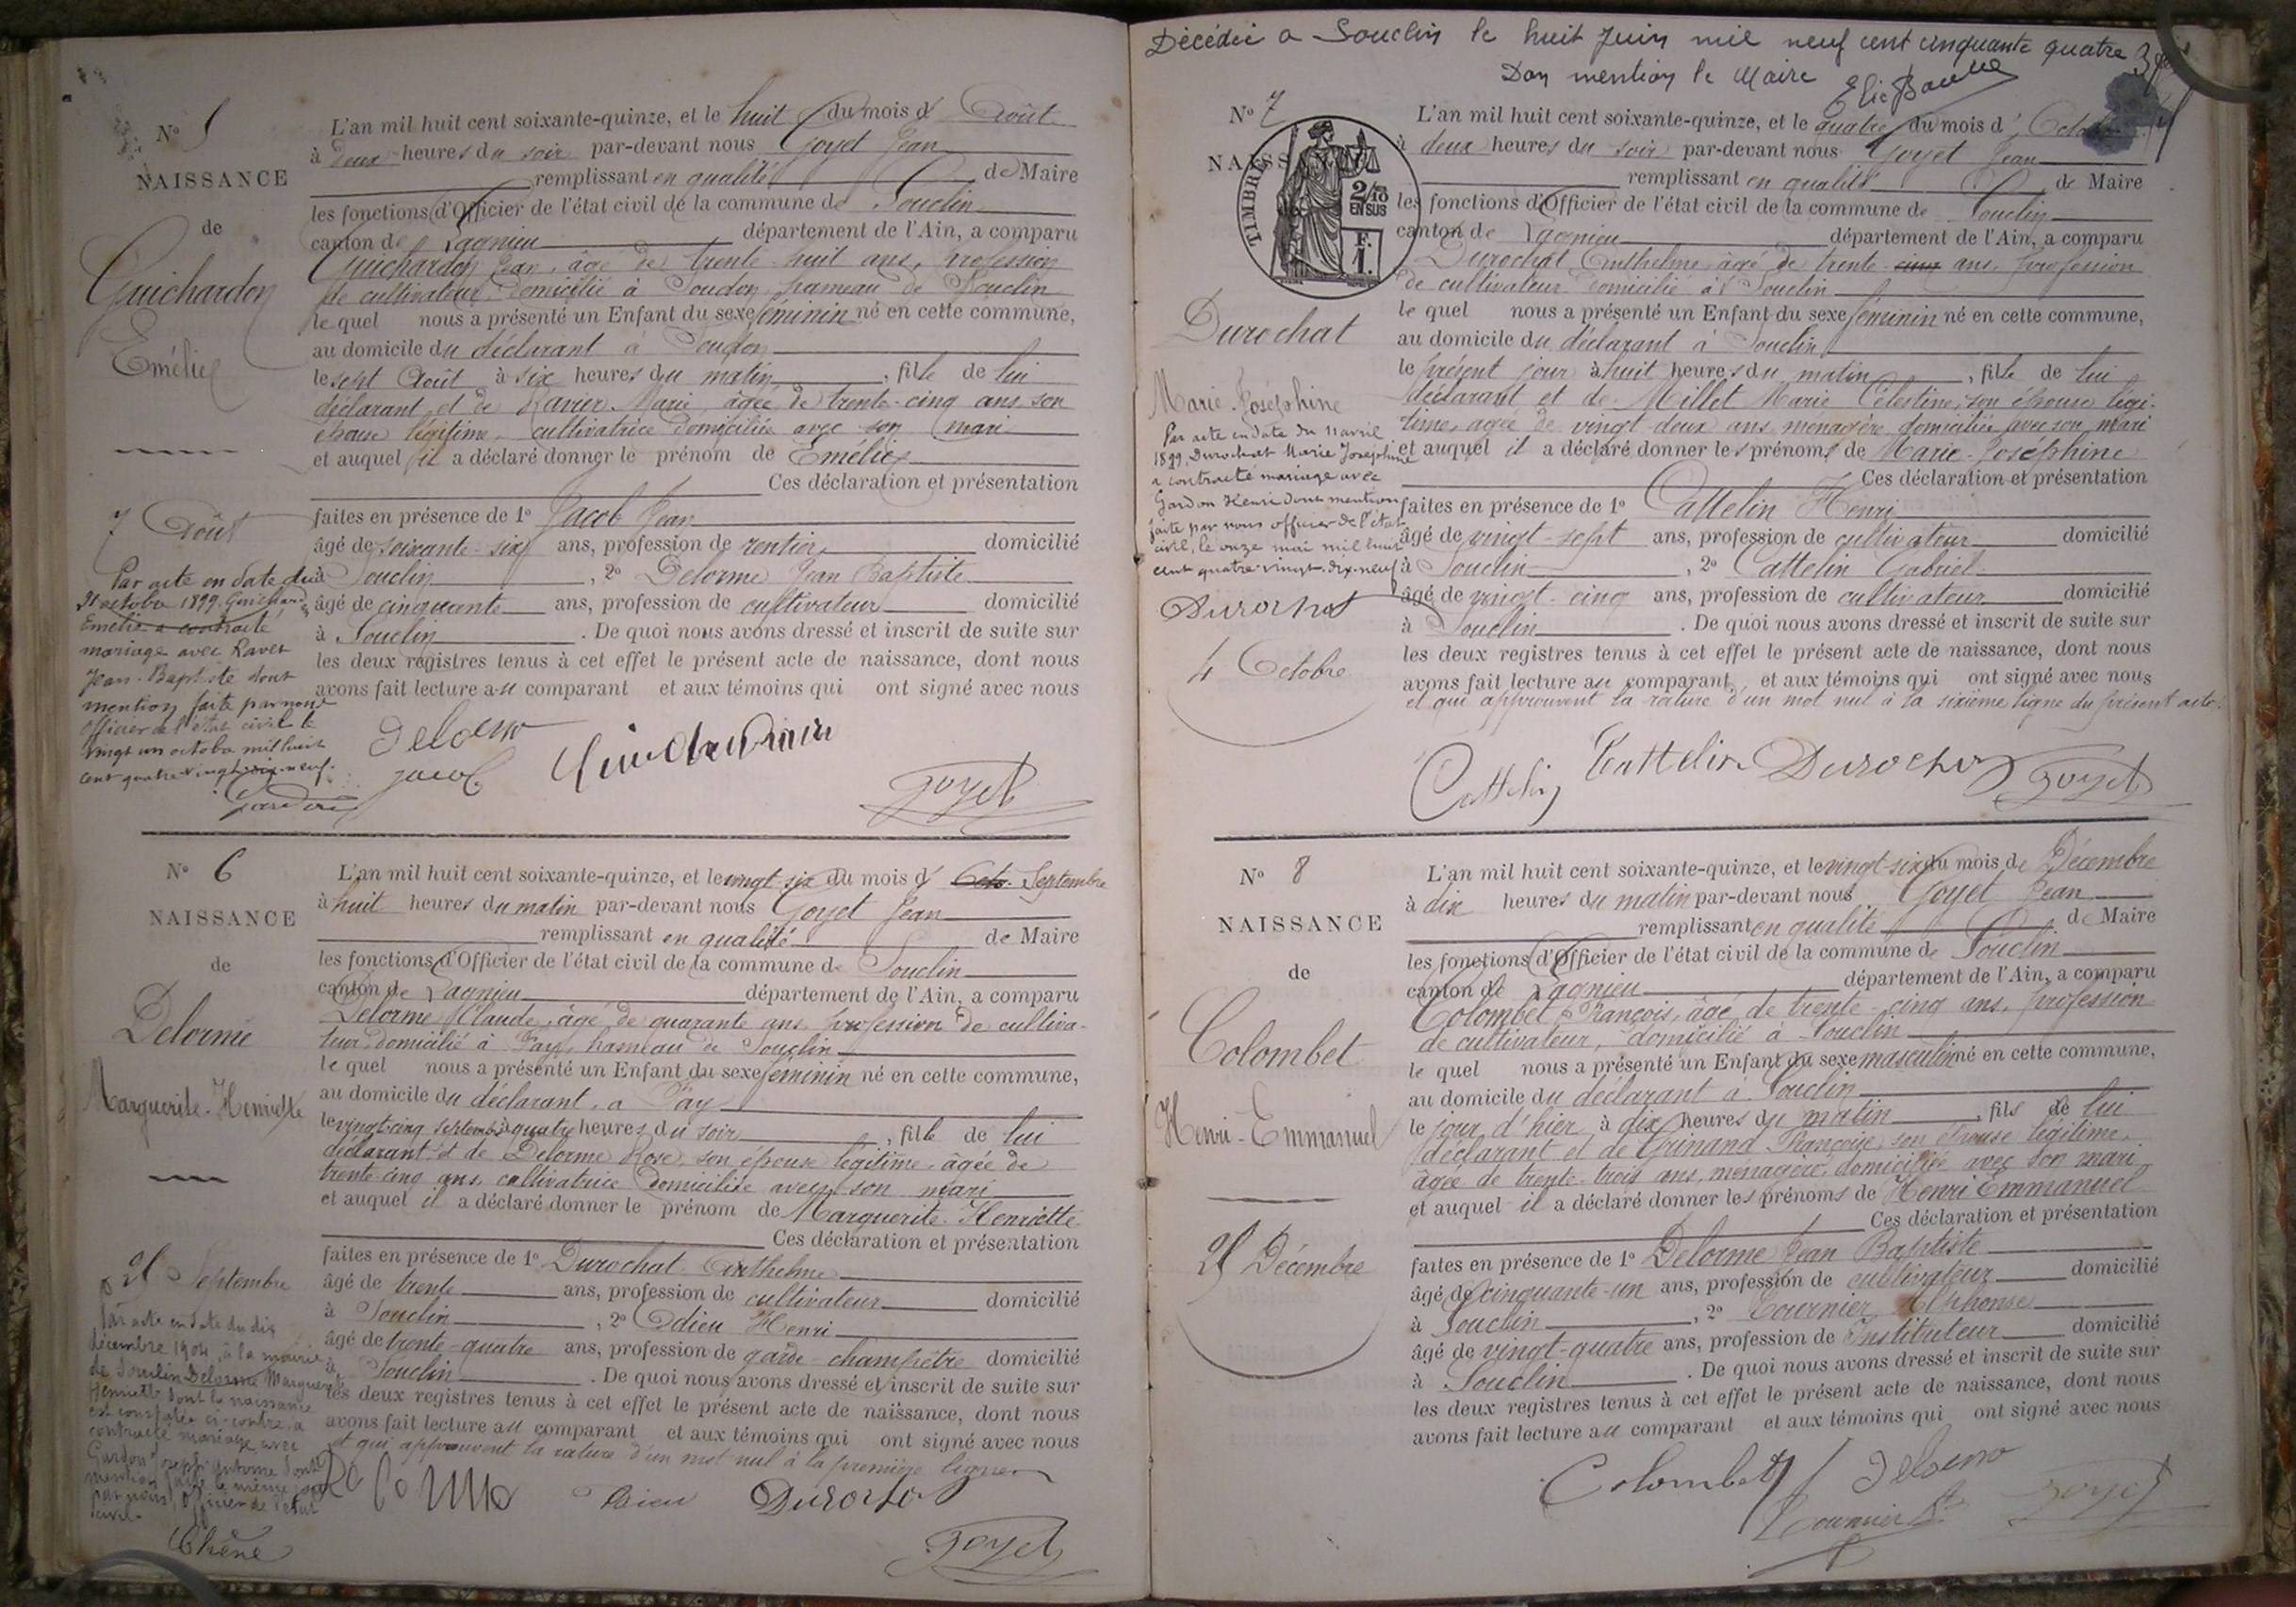 N° 5
NAISSANCE
de
Guichardon
Emélie
7 Août
Par acte en date du
21 octobre 1899 Guichardon
Emélie a contracté
mariage avec Ravet
Jean-Baptiste dont
mention faite par nous
officier de l'état civil le
vingt un octobre mil huit
cent quatre vingt-dix-neuf.
L'an mil huit cent soixante-quinze, et le huit du mois d' Août
à deux heures du soir par-devant nous Goyet Jean
remplissant en qualité de Maire
les fonctions d'Officier de l'état civil de la commune de Souclin
canton de Lagnieu département de l'Ain, a comparu
Guichardon Jean, âgé de trente-huit ans, profession
de cultivateur, domicilié à Soudon, hameau de Souclin
le quel nous a présenté un Enfant du sexe féminin né en cette commune,
au domicile du déclarant à Soudon
le sept Août à six heures du matin, fille de lui
déclarant et de Ravier Marie, âgée de trente-cinq ans son
épouse légitime, cultivatrice domiciliée avec son mari
et auquel il a déclaré donner le prénom de Emélie
Ces déclaration et présentation
faites en présence de 1° Jacob Jean
âgé de soixante-six ans, profession de rentier domicilié
à Souclin, 2° Delorme Jean Baptiste
âgé de cinquante ans, profession de cultivateur domicilié
à Souclin. De quoi nous avons dressé et inscrit de suite sur
les deux registres tenus à cet effet le présent acte de naissance, dont nous
avons fait lecture au comparant et aux témoins qui ont signé avec nous
Delorme
Jacob Guichardon
Goyet
N° 6
NAISSANCE
de
Delorme
Marguerite-Henriette
25 Septembre
Par acte en date du dix
décembre 1904, à la mairie
de Souclin Delorme Marguerite
Henriette dont la naissance
est constatée ci-contre a
contracté mariage avec
Gardon Joseph Antoine dont
mention faite le même jour
par nous, Officier de l'état
civil.
Chêne
L'an mil huit cent soixante-quinze, et le vingt-six du mois d' Octo. Septembre
à huit heures du matin par-devant nous Goyet Jean
remplissant en qualité de Maire
les fonctions d'Officier de l'état civil de la commune de Souclin
canton de Lagnieu département de l'Ain, a comparu
Delorme Claude, âgé de quarante ans, profession de cultiva-
teur domicilié à Fay, hameau de Souclin
le quel nous a présenté un Enfant du sexe féminin né en cette commune,
au domicile du déclarant, à Fay
le vingt-cinq septembre à quatre heures du soir, fille de lui
déclarant & de Delorme Rose, son épouse légitime, âgée de
trente-cinq ans, cultivatrice domiciliée avec son mari
et auquel il a déclaré donner le prénom de Marguerite-Henriette
Ces déclaration et présentation
faites en présence de 1° Durochat Anthelme
âgé de trente ans, profession de cultivateur domicilié
à Souclin, 2° Odieu Henri
âgé de trente-quatre ans, profession de garde-champêtre domicilié
à Souclin. De quoi nous avons dressé et inscrit de suite sur
les deux registres tenus à cet effet le présent acte de naissance, dont nous
avons fait lecture au comparant et aux témoins qui ont signé avec nous
et qui approuvent la rature d'un mot nul à la première ligne
Durochat
Goyet
Décédée a Souclin le huit Juin mil neuf cent cinquante quatre
Don mention le Maire
N° 7
NAISSANCE
TIMBRE
2/10 EN SUS
F. 1.
Durochat
Marie-Joséphine
Par acte en date du 11 avril
1899, Durochat Marie Joséphine
a contracté mariage avec
Gardon Henri dont mention
faite par nous officier de l'état
civil, le onze mai mil huit
cent quatre-vingt-dix-neuf
Durochat
4 Octobre
L'an mil huit cent soixante-quinze, et le quatre du mois d' Octobre
à deux heures du soir par-devant nous Goyet Jean
remplissant en qualité de Maire
les fonctions d'Officier de l'état civil de la commune de Souclin
canton de Lagnieu département de l'Ain, a comparu
Durochat Anthelme, âgé de trente cinq ans, profession
de cultivateur domicilié à Souclin
le quel nous a présenté un Enfant du sexe féminin né en cette commune,
au domicile du déclarant à Souclin
le présent jour à huit heures du matin, fille de lui
déclarant et de Millet Marie Célestine, son épouse légi-
time, âgée de vingt deux ans, ménagère, domiciliée avec son mari
et auquel il a déclaré donner les prénoms de Marie-Joséphine
Ces déclaration et présentation
faites en présence de 1° Cattelin Henri
âgé de vingt-sept ans, profession de cultivateur domicilié
à Souclin, 2° Cattelin Gabriel
âgé de vingt-cinq ans, profession de cultivateur domicilié
à Souclin. De quoi nous avons dressé et inscrit de suite sur
les deux registres tenus à cet effet le présent acte de naissance, dont nous
avons fait lecture au comparant, et aux témoins qui ont signé avec nous
et qui approuvent la rature d'un mot nul à la sixième ligne du présent acte.
Cattelin Cattelin Durochat Goyet
N° 8
NAISSANCE
de
Colombet
Henri-Emmanuel
25 Décembre
L'an mil huit cent soixante-quinze, et le vingt-six du mois de Décembre
à dix heures du matin par-devant nous Goyet Jean
remplissant en qualité de Maire
les fonctions d'Officier de l'état civil de la commune de Souclin
canton de Lagnieu département de l'Ain, a comparu
Colombet François, âgé de trente-cinq ans, profession
de cultivateur, domicilié à Souclin
le quel nous a présenté un Enfant du sexe masculin né en cette commune,
au domicile du déclarant à Souclin
le jour d'hier à dix heures du matin, fils de lui
déclarant et de Grinand Françoise, son épouse légitime,
âgée de trente-trois ans, ménagère, domiciliée avec son mari
et auquel il a déclaré donner les prénoms de Henri Emmanuel
Ces déclaration et présentation
faites en présence de 1° Delorme Jean Baptiste
âgé de cinquante-un ans, profession de cultivateur domicilié
à Souclin, 2° Tournier, Alphonse
âgé de vingt-quatre ans, profession de Instituteur domicilié
à Souclin. De quoi nous avons dressé et inscrit de suite sur
les deux registres tenus à cet effet le présent acte de naissance, dont nous
avons fait lecture au comparant et aux témoins qui ont signé avec nous
Colombet Delorme
Tournier A. Goyet